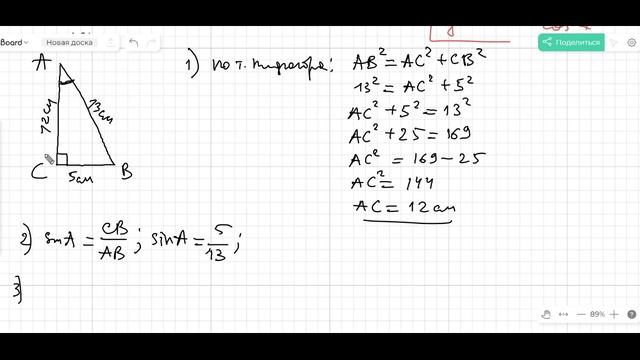 Board
Новая доска
Поделиться
A
12 см
13 см
C
5 см
B
1) по т. Пифагора:
AB² = AC² + CB²
13² = AC² + 5²
AC² + 5² = 13²
AC² + 25 = 169
AC² = 169 − 25
AC² = 144
AC = 12 см
2) sinA = CB/AB; sinA = 5/13;
3)
89%